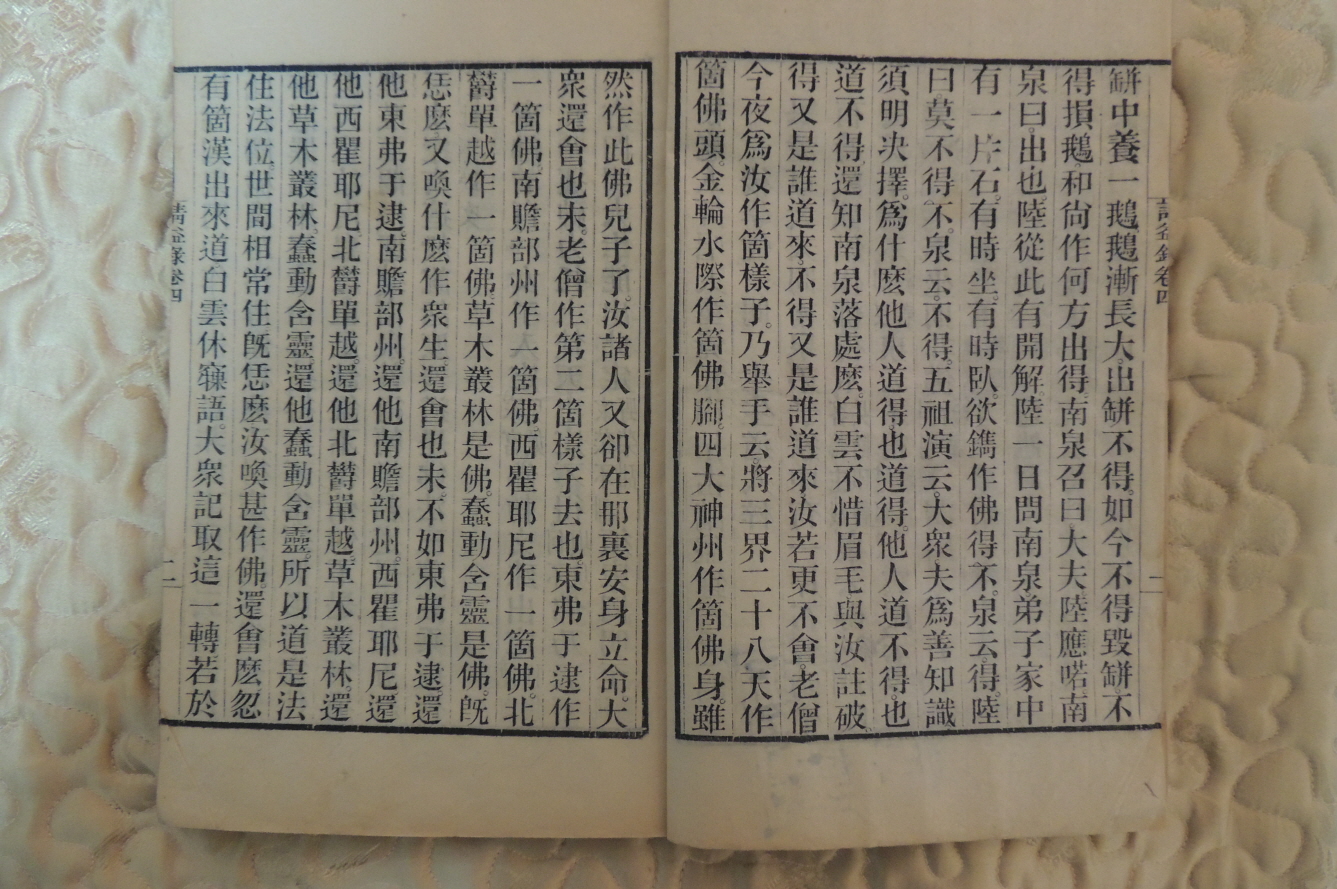 缾中養一鵝鵝漸長大出缾不得。如今不得毀缾。不
得損鵝。和尙作何方出得。南泉召曰。大夫。陸應喏。南
泉曰。出也。陸從此有開解。陸一日問南泉。弟子家中
有一片石。有時坐。有時臥。欲鐫作佛得不。泉云。得。陸
曰。莫不得不。泉云。不得。五祖演云。大衆。夫爲善知識
須明决擇。爲什麽他人道得。也道得。他人道不得。也
道不得。還知南泉落處麽。白雲不惜眉毛。與汝註破。
得又是誰道來。不得又是誰道來。汝若更不會。老僧
今夜爲汝作箇樣子。乃舉手云。將三界二十八天作
箇佛頭。金輪水際作箇佛腳。四大神州作箇佛身。雖
請益錄卷四
二
然作此佛兒子了。汝諸人又卻在那裏安身立命。大
衆還會也未。老僧作第二箇樣子去也。東弗于逮作
一箇佛。南贍部州作一箇佛。西瞿耶尼作一箇佛。北
鬱單越作一箇佛。草木叢林是佛。蠢動含靈是佛。旣
恁麽。又喚什麽作衆生。還會也未。不如東弗于逮。還
他東弗于逮。南贍部州。還他南贍部州。西瞿耶尼。還
他西瞿耶尼。北鬱單越。還他北鬱單越。草木叢林。還
他草木叢林。蠢動含靈。還他蠢動含靈。所以道。是法
住法位。世間相常住。旣恁麽。汝喚甚作佛。還會麽。忽
有箇漢出來道。白雲休寱語。大衆記取這一轉。若於
請益錄卷四
二